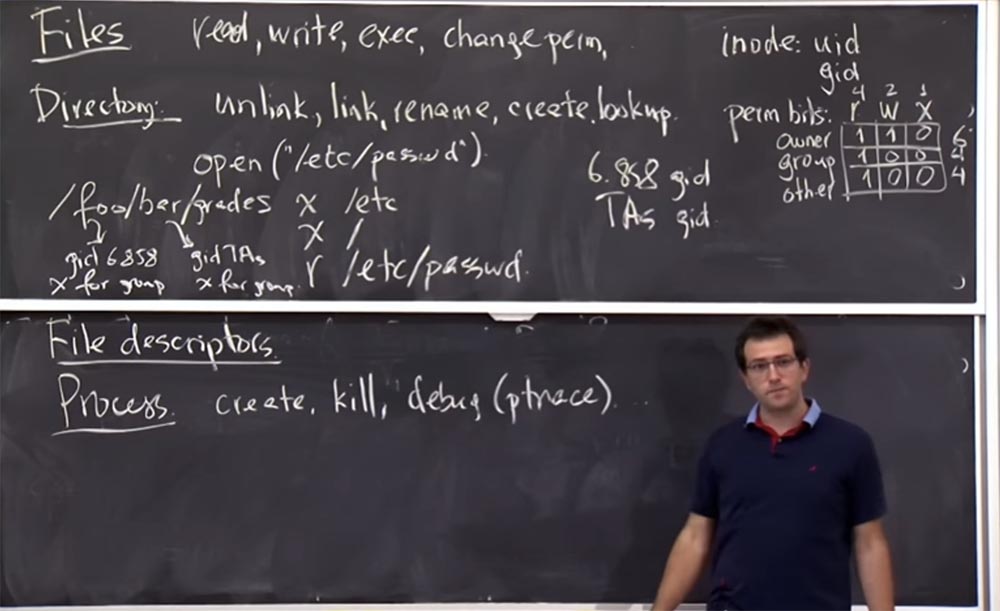 Files read, write, exec, change perm,
Directory: unlink, link, rename, create, lookup.
open ("/etc/passwd").
/foo/bar/grades x /etc
x /
gid 6858 gid TAs r /etc/passwd
x for group x for group
6.858 gid
TAs gid
inode: uid
gid
4 2 1
perm bits: r w x
owner 1 1 0 6
group 1 0 0 4
other 1 0 0 4
File descriptors
Process. create, kill, debug (ptrace) ...